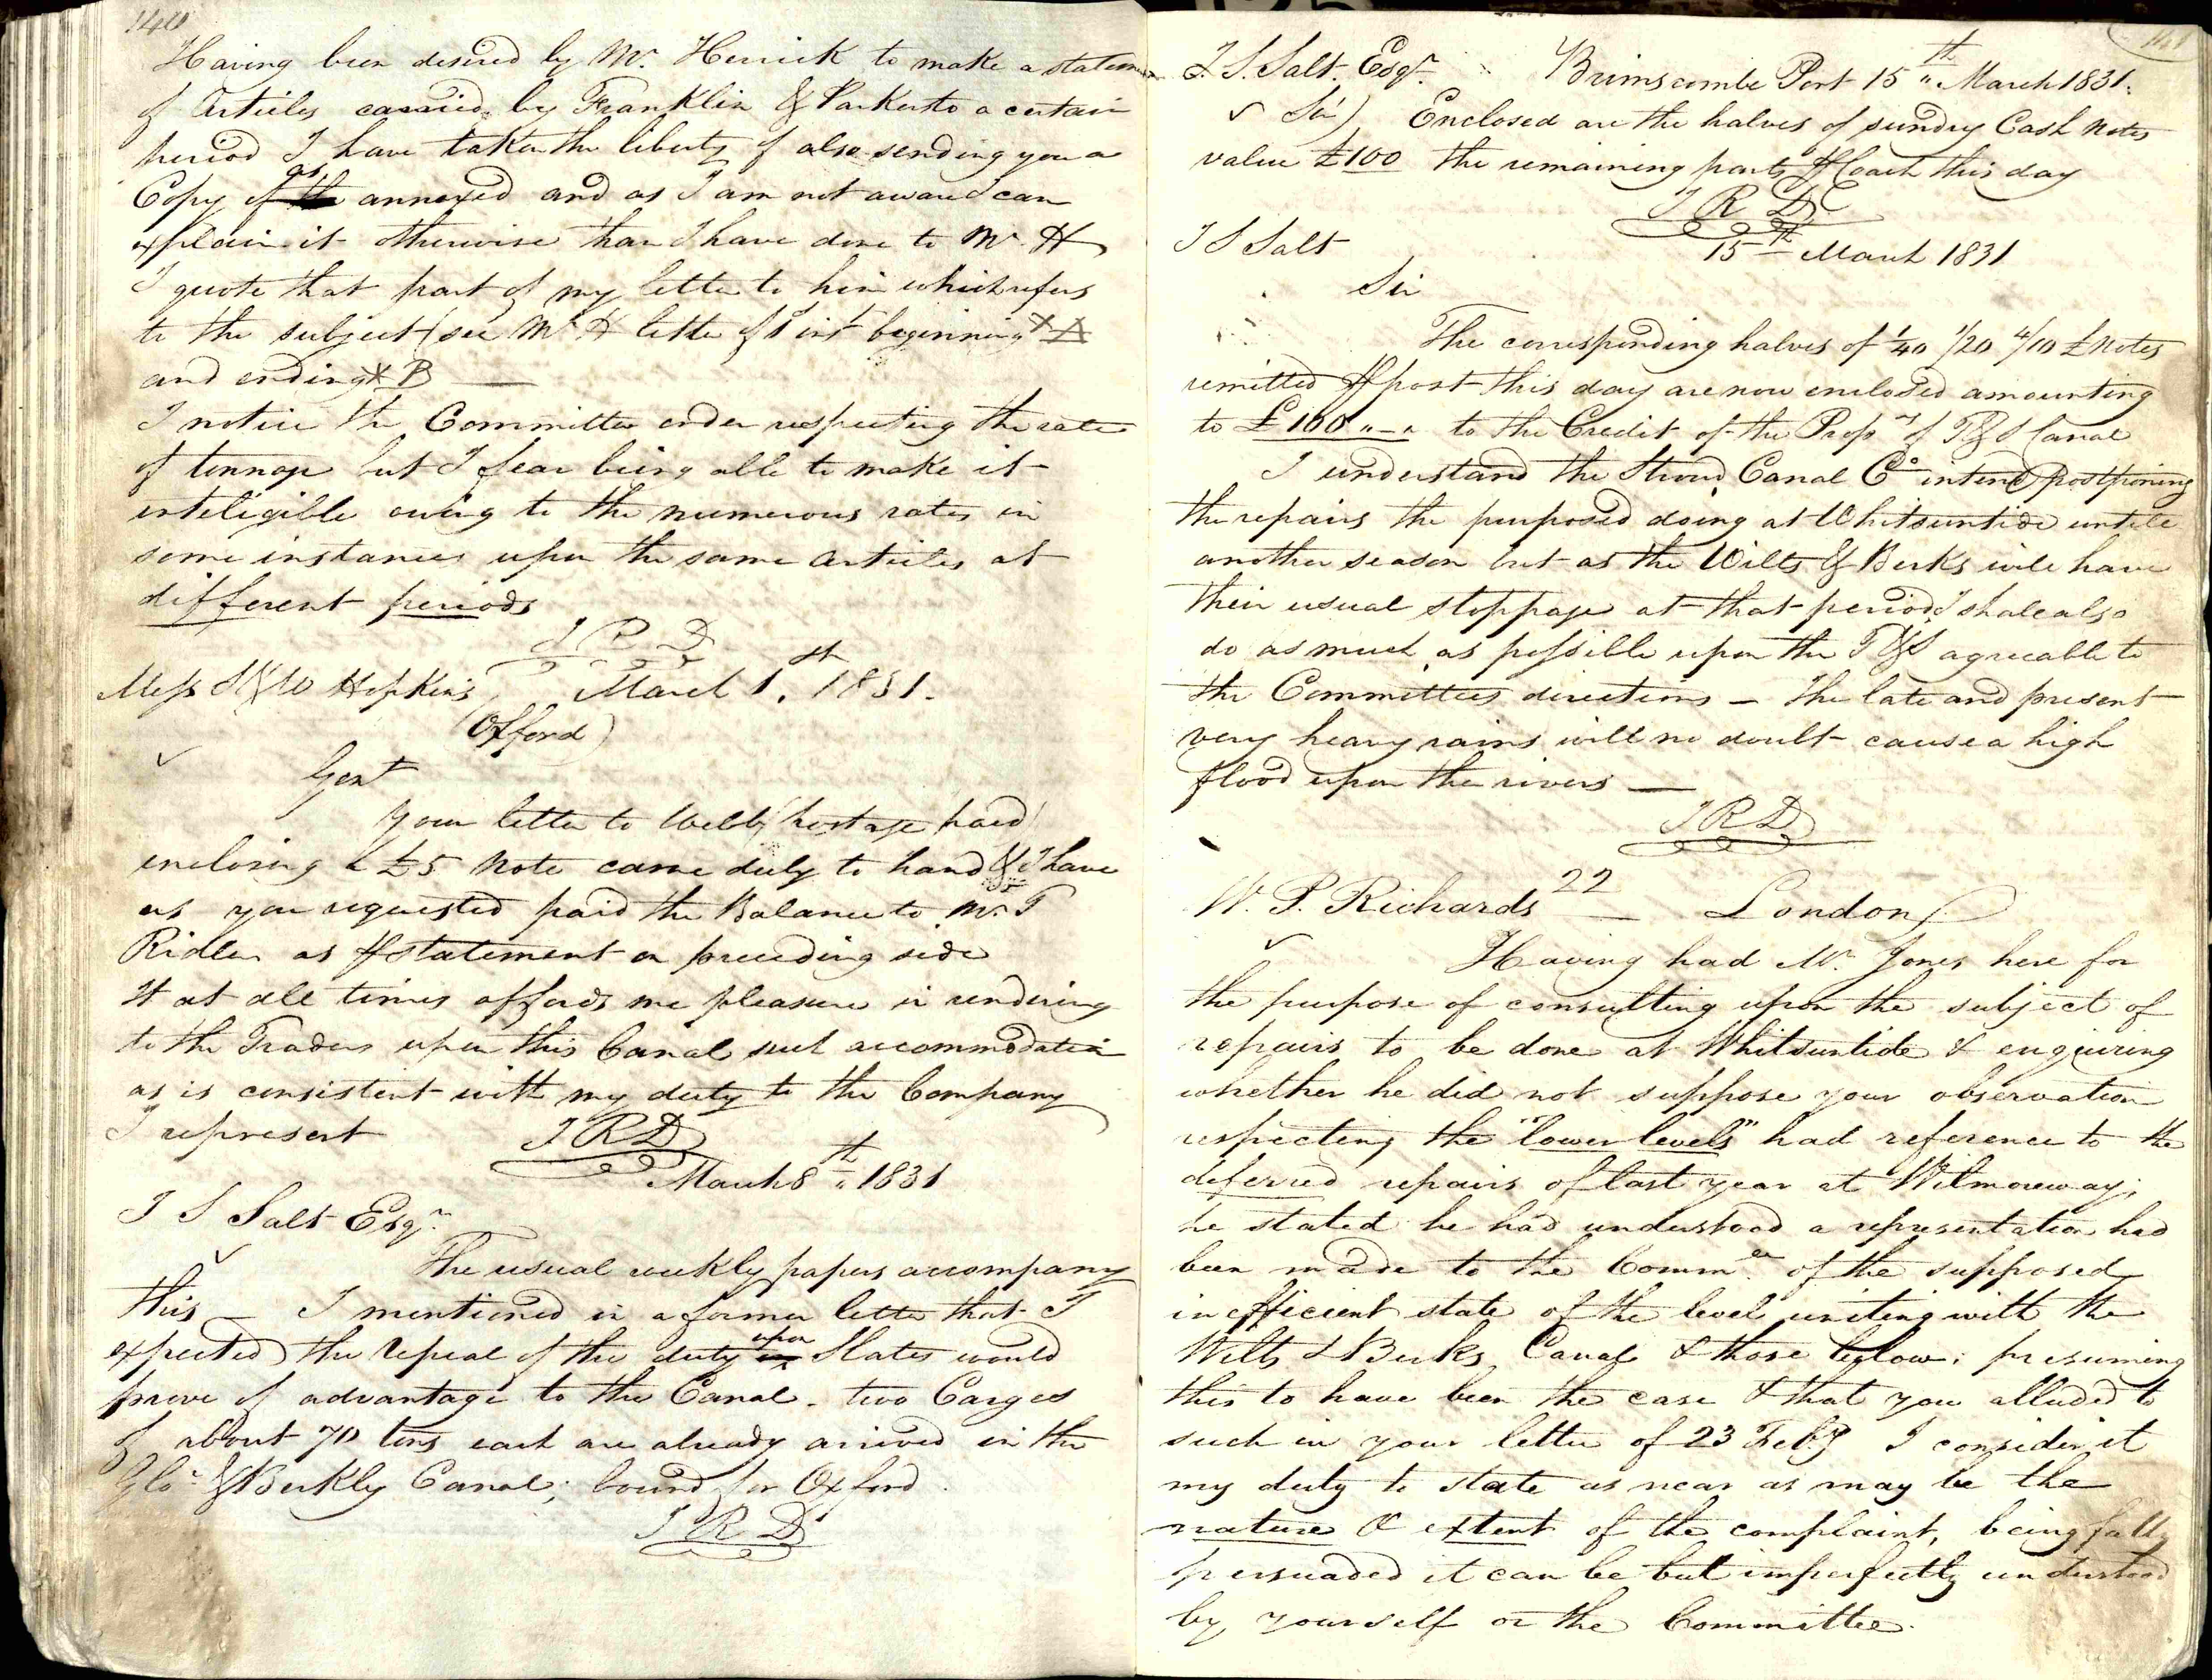 140
Having been desired by Mr. Herrick to make a statemen
of Articles carried by Franklin & Parker to a certain
period I have taken the liberty of also sending you a
Copy of as annexed and as I am not aware I can
explain it otherwise than I have done to Mr. H
I quote that part of my letter to him which refers
to the subject (see Mr H letter of 1 inst beginning X A
and ending X B —
I notice the Committee order respecting the rates
of tonnage but I fear being able to make it
inteligible owing to the numerous rates in
some instances upon the same Articles at
different periods
J R D
Mess S & W Hopkins March 1st 1831.
(Oxford)
Gent
Your letter to Webb (postage paid)
enclosing a £5 Note came duly to hand & I have
as you requested paid the Balance to Mr. T
Ridler as ⅌ statement on preceeding side
It at all times affords me pleasure in rendering
to the Traders upon this Canal such accommodation
as is consistent with my duty to the Company
I represent J R D
March 8th 1831
J S Salt Esqr.
The usual weekly papers accompany
this — I mentioned in a former letter that I
expected the repeal of the duty upon Slates would
prove of advantage to the Canal. two Cargoes
of about 70 tons each are already arrived in the
Glo'r & Berkly Canal; bound for Oxford.
J R D
141
J. S. Salt. Esqr. Brimscombe Port 15th March 1831.
Sir) Enclosed are the halves of sundry Cash Notes
value £100 the remaining parts ⅌ Coach this day
J R D
J S Salt 15th March 1831
Sir
The corresponding halves of 1/40 1/20 4/10 £ Notes
remitted ⅌ post this day are now enclosed amounting
to £100 " - " to the Credit of the Proprs of T & S Canal
I understand the Stroud Canal Co intend postponing
the repairs the purposed doing at Whitsuntide untill
another season but as the Wilts & Berks will have
their usual stoppage at that period I shall also
do as much as possible upon the T & S agreeable to
the Committees directions — The late and present
very heavy rains will no doubt cause a high
flood upon the rivers —
J R D
W. P. Richards 22 — London
Having had Mr. Jones here for
the purpose of consulting upon the subject of
repairs to be done at Whitsuntide & enquiring
whether he did not suppose your observation
respecting the "lower levels" had reference to the
deferred repairs of last year at Wilmoreway;
he stated he had understood a representation had
been made to the Commee of the supposed
inefficient state of the level uniting with the
Wilts & Berks Canal & those below; presuming
this to have been the case & that you alluded to
such in your letter of 23 Feby I consider it
my duty to state as near as may be the
nature & extent of the complaint, being fully
persuaded it can be but imperfectly understood
by yourself or the Committee.